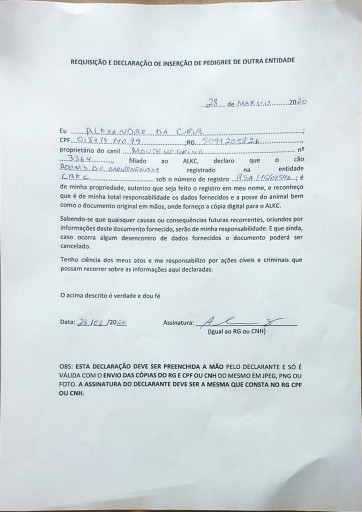 REQUISIÇÃO E DECLARAÇÃO DE INSERÇÃO DE PEDIGREE DE OUTRA ENTIDADE
28 de MARÇO 2020
Eu ALEXANDRE DA
CPF ;RG
proprietário do canil nº
3364, filiado ao ALKC, declaro que o cão
registrado na entidade
sob o número de registro ; é
de minha propriedade, autorizo que seja feito o registro em meu nome, e reconheço
que é de minha total responsabilidade os dados fornecidos e a posse do animal bem
como o documento original em mãos, onde forneço a cópia digital para o ALKC.
Sabendo-se que quaisquer causas ou consequências futuras recorrentes, oriundos por
informações deste documento fornecido, serão de minha responsabilidade. E que ainda,
caso ocorra algum desencontro de dados fornecidos o documento poderá ser
cancelado.
Tenho ciência dos meus atos e me responsabilizo por ações cíveis e criminais que
possam recorrer sobre as informações aqui declaradas.
O acima descrito é verdade e dou fé
Data: 28/03/2020 Assinatura:
(Igual ao RG ou CNH)
OBS: ESTA DECLARAÇÃO DEVE SER PREENCHIDA A MÃO PELO DECLARANTE E SÓ É
VÁLIDA COM O ENVIO DAS CÓPIAS DO RG E CPF OU CNH DO MESMO EM JPEG, PNG OU
FOTO. A ASSINATURA DO DECLARANTE DEVE SER A MESMA QUE CONSTA NO RG CPF
OU CNH.